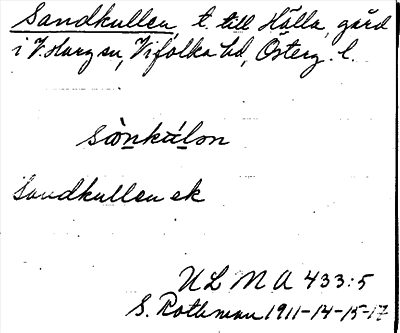 Sandkullen, t. till Hälla, gård
i V. Harg sn, Vifolka hd, Österg. l.
sànkúlon
Sandkullen ek
ULMA 433:5
S. Rothman 1911-14-15-17